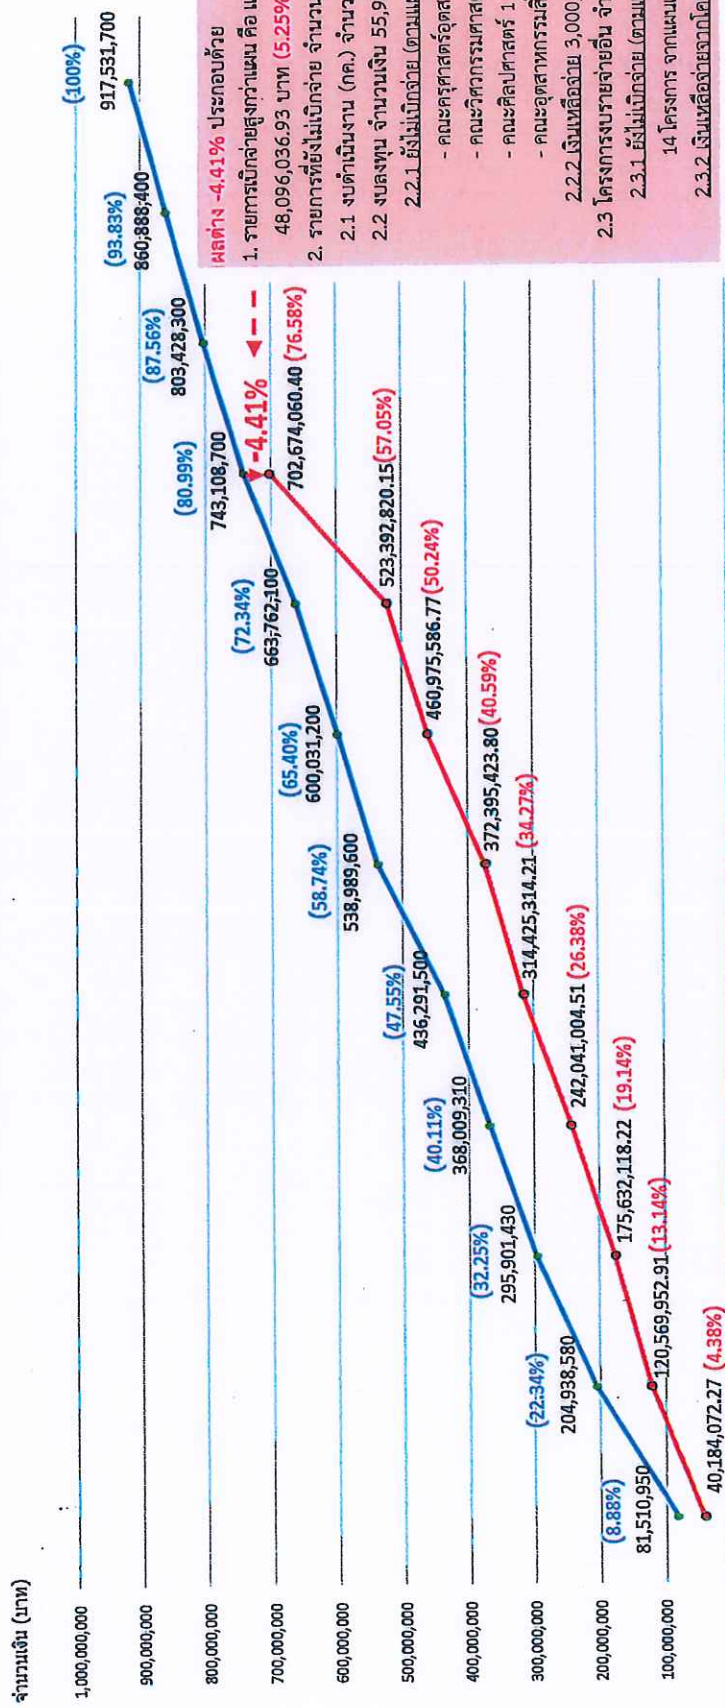 จำนวนเงิน (บาท)
1,000,000,000
900,000,000
800,000,000
700,000,000
600,000,000
500,000,000
400,000,000
300,000,000
200,000,000
100,000,000
(8.88%)
81,510,950
(22.34%)
204,938,580
(32.25%)
295,901,430
(40.11%)
368,009,310
(47.55%)
436,291,500
(58.74%)
538,989,600
(65.40%)
600,031,200
(72.34%)
663,762,100
(80.99%)
743,108,700
(87.56%)
803,428,300
(93.83%)
860,888,400
(100%)
917,531,700
40,184,072.27 (4.38%)
120,569,952.91 (13.14%)
175,632,118.22 (19.14%)
242,041,004.51 (26.38%)
314,425,314.21 (34.27%)
372,395,423.80 (40.59%)
460,975,586.77 (50.24%)
523,392,820.15 (57.05%)
702,674,060.40 (76.58%)
-4.41%
ผลต่าง -4.41% ประกอบด้วย
1. รายการเบิกจ่ายสูงกว่าแผน คือ
48,096,036.93 บาท (5.25%
2. รายการที่ยังไม่เบิกจ่าย จำนวน
2.1 งบดำเนินงาน (กค.) จำนว
2.2 งบลงทุน จำนวนเงิน 55,9
2.2.1 ยังไม่เบิกจ่าย (ตามแ
- คณะครุศาสตร์อุตส
- คณะวิศวกรรมศาส
- คณะศิลปศาสตร์ 1
- คณะอุตสาหกรรมสิ
2.2.2 เงินเหลือจ่าย 3,000,
2.3 โครงการงบรายจ่ายอื่น จำ
2.3.1 ยังไม่เบิกจ่าย (ตาม
14 โครงการ จากแผน
2.3.2 เงินเหลือจ่ายจากโค